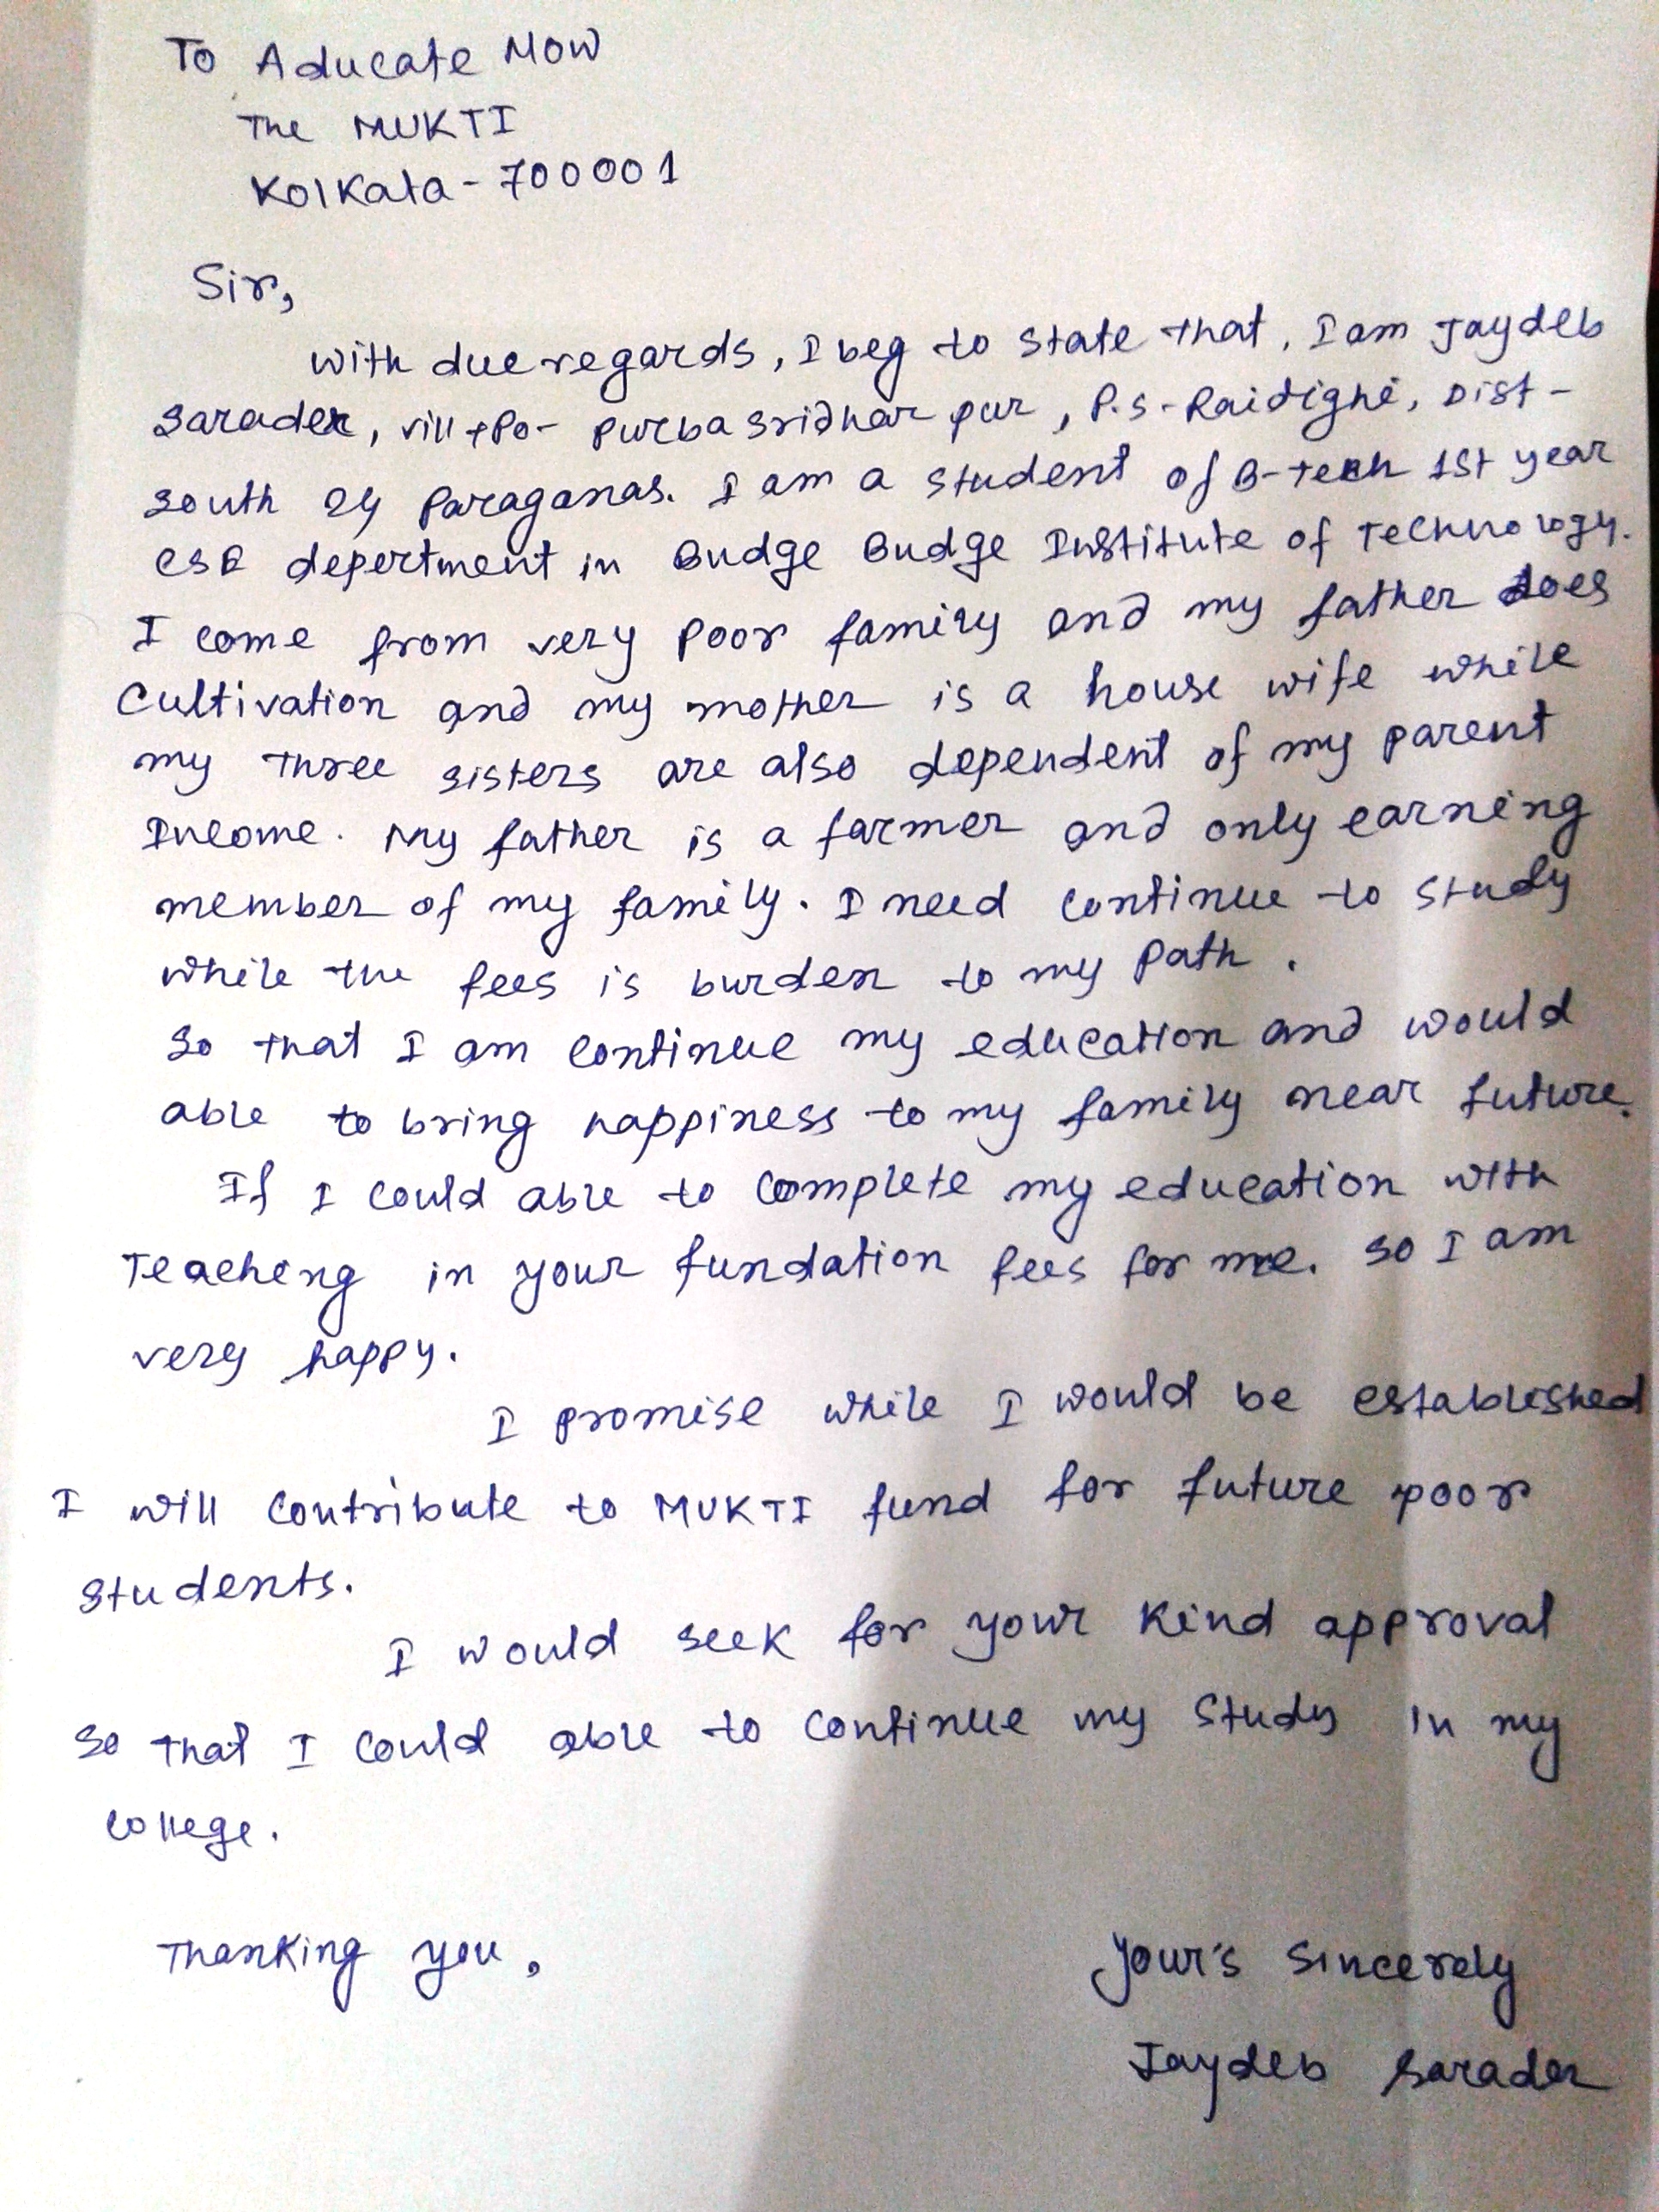 To Aducate Now
The MUKTI
Kolkata - 700001
Sir,
With due regards, I beg to state that, I am Jaydeb
Sarader, vill+Po- Purba Sridhar pur, P.S - Raidighi, Dist -
South 24 Paraganas. I am a student of B-Tech 1st year
CSE depertment in Budge Budge Institute of Technology.
I come from very poor family and my father does
Cultivation and my mother is a house wife while
my three sisters are also dependent of my parent
Income. My father is a farmer and only earning
member of my family. I need continue to study
while the fees is burden to my path.
So that I am continue my education and would
able to bring happiness to my family near future.
If I could able to complete my education with
Teacheng in your fundation fees for me. So I am
very happy.
I promise while I would be established
I will contribute to MUKTI fund for future poor
students.
I would seek for your kind approval
So that I could able to continue my study in my
college.
Thanking you,
Your's Sincerely
Jaydeb Sarader